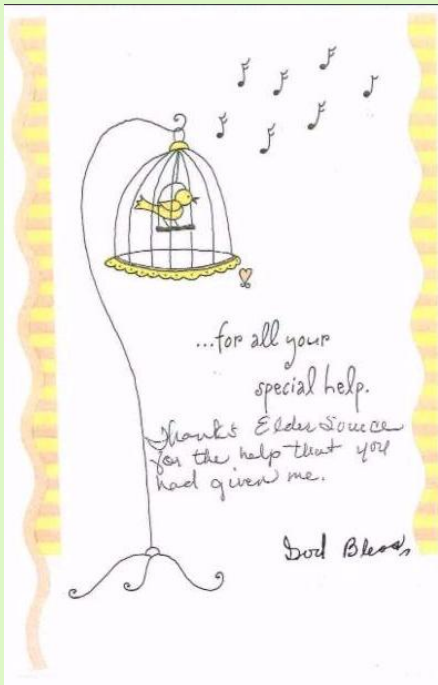 ...for all your
special help.
Thanks Elder Source
for the help that you
had given me.
God Bless